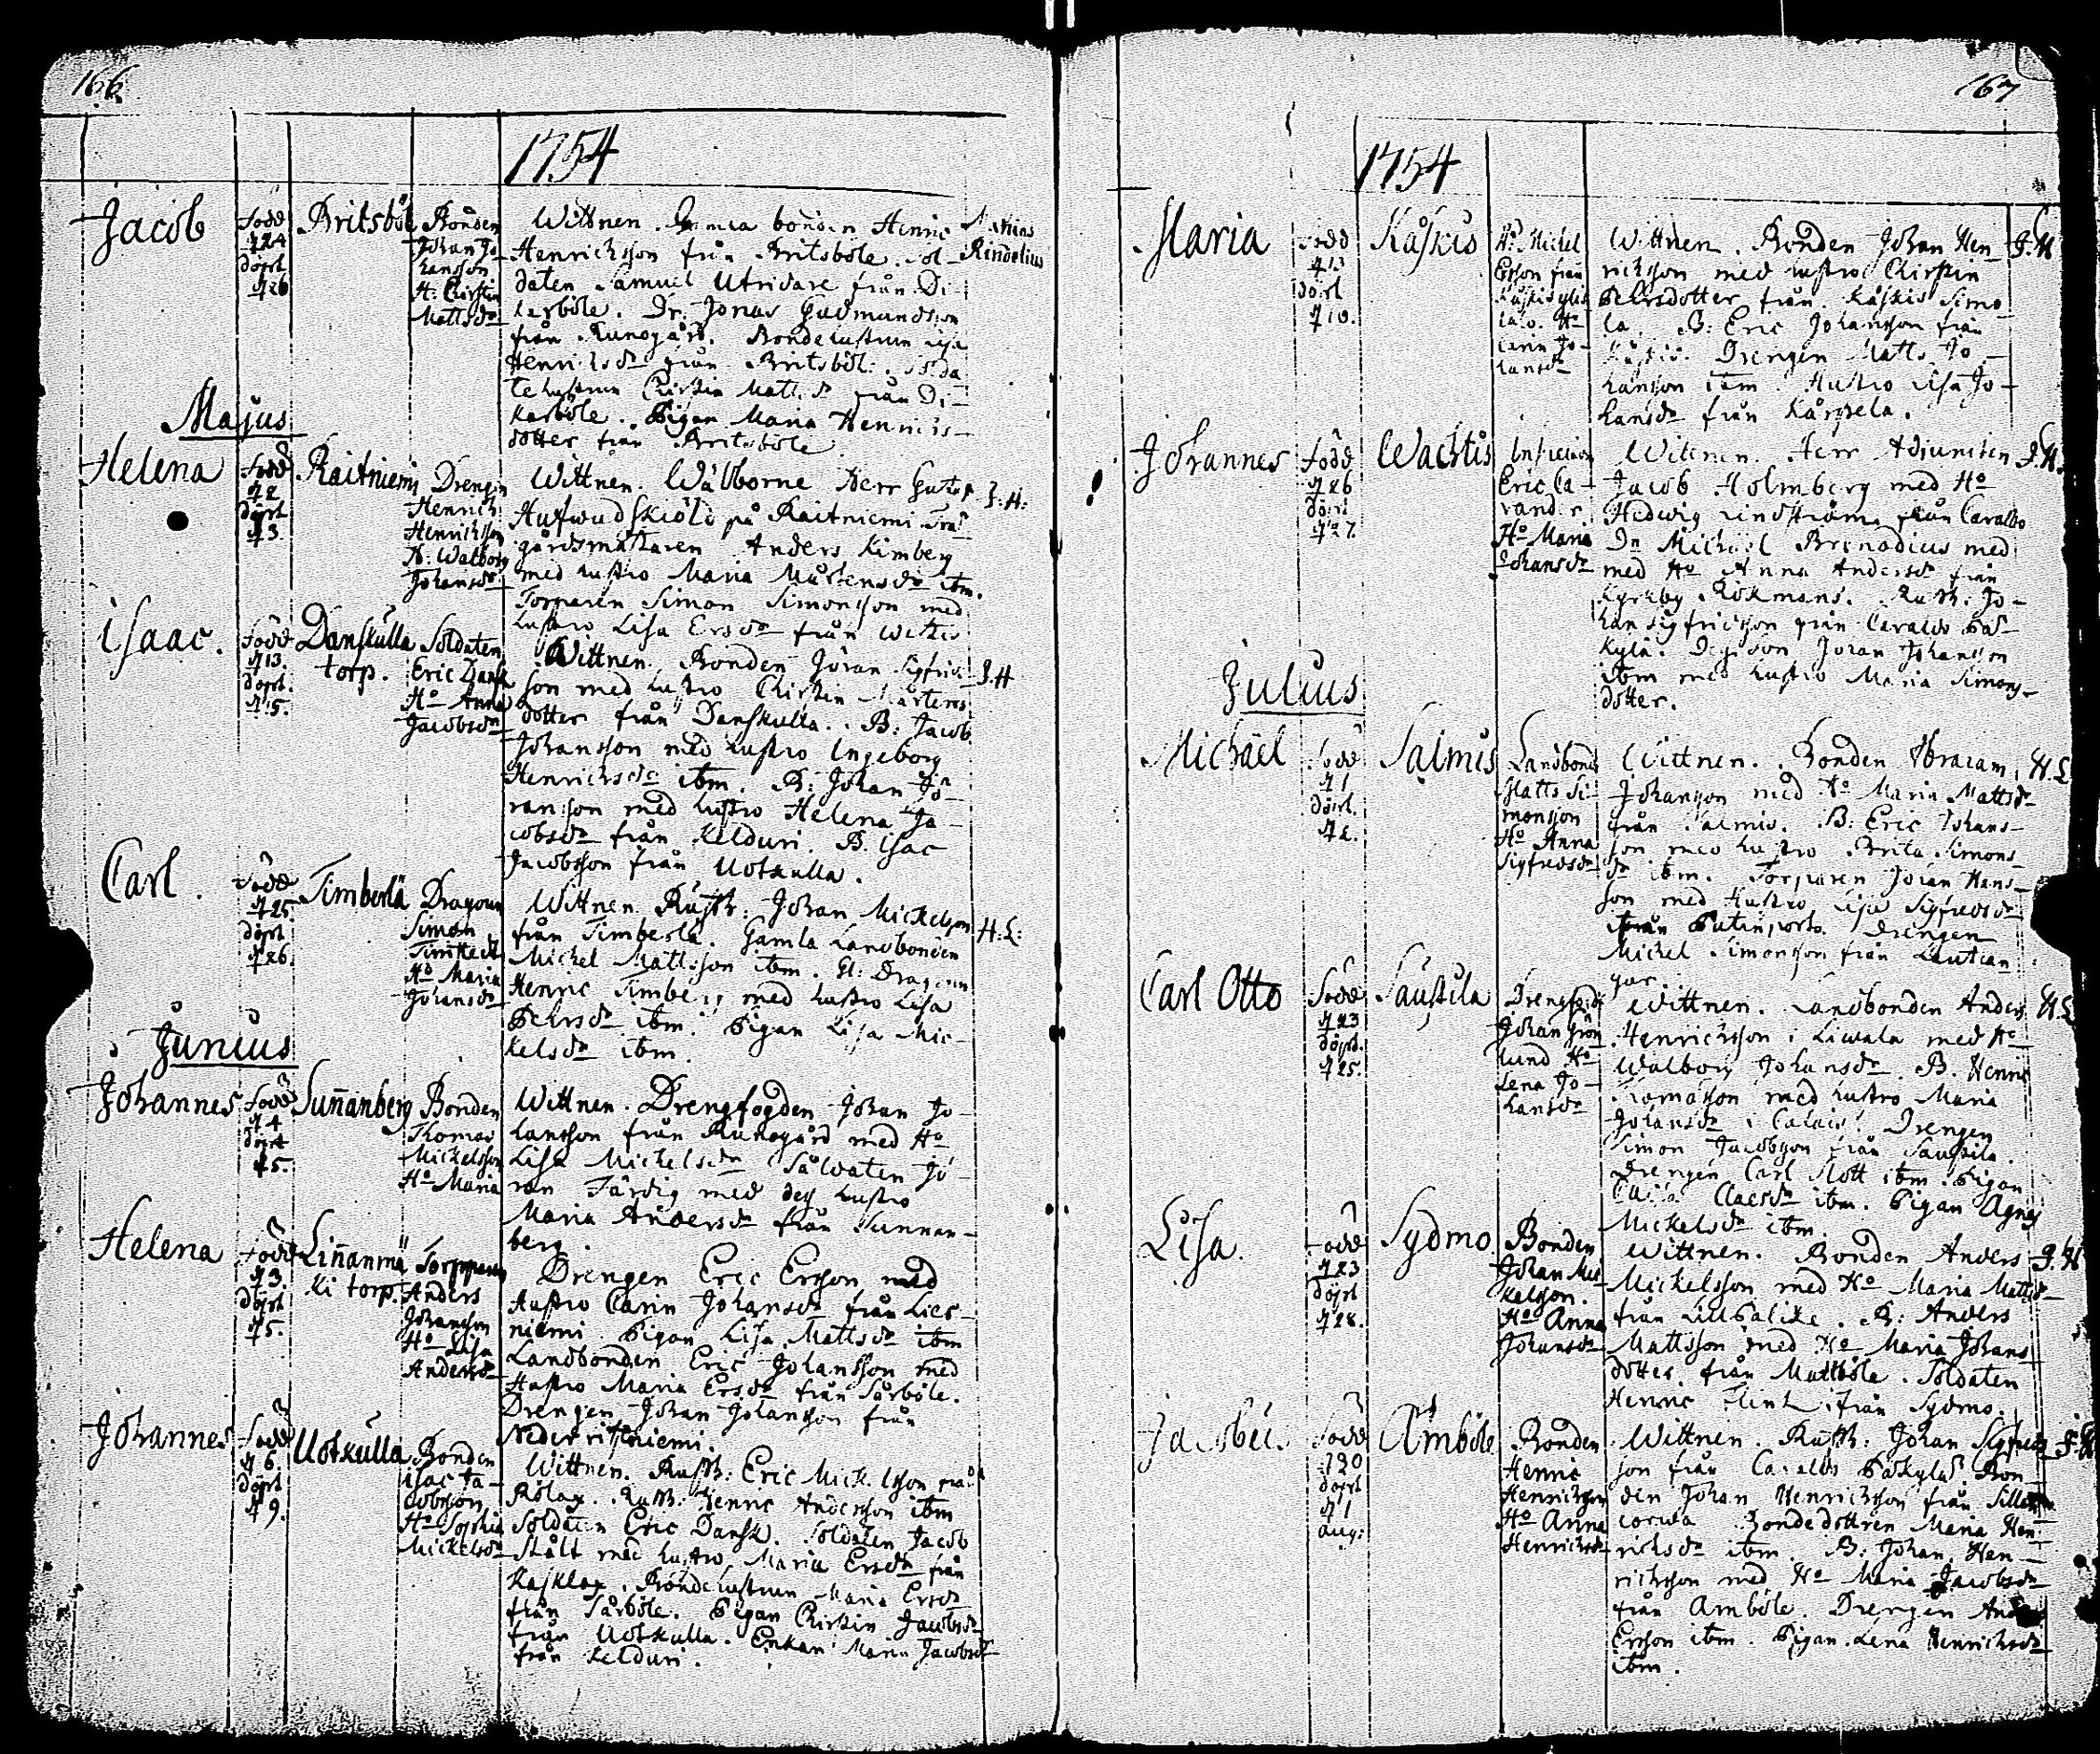 166
1754
Jacob
Född
d. 24
döpt
d. 26
Britsböl
Bonden
Johan Jo-
hansson
H: Chirstin
Mattsdr
Wittnen. Gamla bonden Henric
Henrichsson från Britsböle. Sol-
daten Samuel Utridare från Di-
karböle. Dr: Jonas Gudmundsson
från Runogård. Bondehustrun Lisa
Henrichsdr från Britsböle. Solda
tehustrun Chirstin Mattsdr från Di-
karböle. Pigan Maria Henrichs-
dotter från Britsböle
Rindelius
Majus
Helena
Född
d. 2
döpt
d. 3.
Raitniemi
Drengen
Henrich
Henrichsson
H: Walborg
Johansdr
Wittnen. Wälborne Herr Gustaf
Hufwudskiöld på Raitniemi Trä
gårdsmästaren Anders Kimberg
med hustro Maria Mårtensdr ibm.
Torparen Simon Simonsson med
hustro Lisa Ersdr från
J: H:
Isaac.
Född
d. 13.
döpt.
d. 15.
Danskulla
torp.
Soldaten
Eric Dansk
Ho Anna
Jacobsdr
Wittnen. Bonden Jöran Sigfrids
son med hustro Chirstin Mårtens
dotter från Danskulla. B: Jacob
Johansson med hustro Ingeborg
Henrichsdr ibm. B: Johan Jö-
ransson med hustro Helena Ja-
cobsdr från Kelduri. B. Isac
Jacobsson från Uotkulla.
J. H
Carl.
Född
d. 25.
döpt
d. 26.
Timberlä
Dragoun
Simon
Ho Maria
Johansdr
Wittnen. Rusth: Johan Mickelsson
från Timberlä. Gamla Landbonden
Michel Mattsson ibm. Gl: Dragoun
Henric Timberg med hustro Lisa
Pehrsdr ibm. Pigan Lisa Mic-
kelsdr ibm.
H: L:
Junius
Johannes
Född
d. 4
döpt
d. 5.
Sunnanberg
Bonden
Thomas
Mickelsson
Ho Maria
Wittnen. Drengfogden Johan Jo-
hansson från Runogård med Ho
Lisa Mickelsdr Såldaten Jö-
ran Färdig med dess hustro
Maria Andersdr från Sunnan-
berg.
Helena
Född
d. 3.
döpt
d. 5.
Linnanmä
ki torp.
Torpparen
Anders
Johansson
Ho Lisa
Andersdr
Drengen Eric Ersson med
hustro Carin Johansdr från Lies-
niemi. Pigan Lisa Mattsdr ibm
Landbonden Eric Johansson med
Hustro Maria Ersdr från Sårböle.
Drengen Johan Johansson från
Johannes
Född
d. 6.
döpt
d. 9.
Uotkulla
Bonden
Isac Ja-
cobsson
Ho Sophia
Mickelsdr
Wittnen. Rusth: Eric Mickelsson från
Rölax. Rusth: Henric Andersson ibm
Soldaten Eric Dansk. Soldaten Jacob
Stålt med hustro Maria Ersdr från
Kasklax. Bondehustrun Maria Ersdr
från Sårböle. Pigan Chirstin Jacobsdr
från Uotkulla. Enkan Maria Jacobsdr
från Kelduri.
167
1754
Maria
Född
d. 13
döpt
Kåskis
Ho Michel
Ersson från
Jo-
hansdr
Wittnen. Bonden Johan Hen-
richsson med hustro Chirstin
Pehrsdotter från Kåskis Simo
la. B: Eric Johansson från
Kåskis. Drengen Matts Jo-
hansson ibm. Hustro Lisa Jo-
hansdr från Kårpela.
J. H
Johannes
Född
d. 26
döpt
d. 27.
Wachtis
Eric Ca-
Ho Maria
Johansdr
Wittnen. Herr Adjuncten
Jacob Holmberg med Ho
Hedwig Lindström från Caralbo
Dn Michaël Brenodius med
med Ho Anna Andersdr från
Kyrkby Rökmans. Rusth: Jo-
han Sigfridsson från Caralbo Pås-
kylä. Dess son Johan Johansson
ibm med hustro Maria Simons-
dotter.
J. H.
Julius
Michael
Född
d. 1
döpt.
d. 2.
Salmis
Landbond
Matts Si-
monsson
Ho Anna
Sigfredsdr
Wittnen. Bonden Abraham
Johansson med Ho Maria Mattsdr
från Salmis. B: Eric Johans-
son med hustro Brita Simons-
dr ibm. Torparen Johan Hans-
son med Hustro Lisa Sigfredsdr
från Drengen
Michel Simonsson från
H. L
Carl Otto
Född
d. 23
döpt.
d. 25.
Saustila
Drengfogd
Johan Grön
lund Ho
Lena Jo-
hansdr
Wittnen. Landbonden Anders
Henrichsson i Liwala med Ho
Walborg Johansdr. B. Henric
Thomasson med hustro Maria
Johansdr i Drengen
Simon Jacobsson från Saustila.
Drengen Carl Slott ibm. Pigan
Caisa Claesdr ibm. Pigan Agnes
Mickelsdr ibm.
H. L
Lisa.
Född
d. 23
döpt
d. 28.
Sydmo
Bonden
Johan Mic
kelsson.
Ho Anna
Johansdr
Wittnen. Bonden Anders
Mickelsson med Ho Maria Mattsdr
från B: Anders
Mattsson med Ho Maria Johans
dotter från Mattböle. Soldaten
Henric Flink från Sydmo.
J. H
Jacobus.
Född
d. 30
döpt
d. 1
aug:
Åmböle
Bonden
Henric
Henrichsson
Ho Anna
Henrichsdr
Wittnen. Rusth: Johan Sigfreds
son från Caralbo Påskylä. Bon-
den Johan Henrichsson från
Bondedottren Maria Hen-
richsdr ibm. B: Johan Hen-
richsson med Ho Maria Jacobsdr
från Åmböle. Drengen
Ersson ibm. Pigan Lena Henrichsdr
ibm.